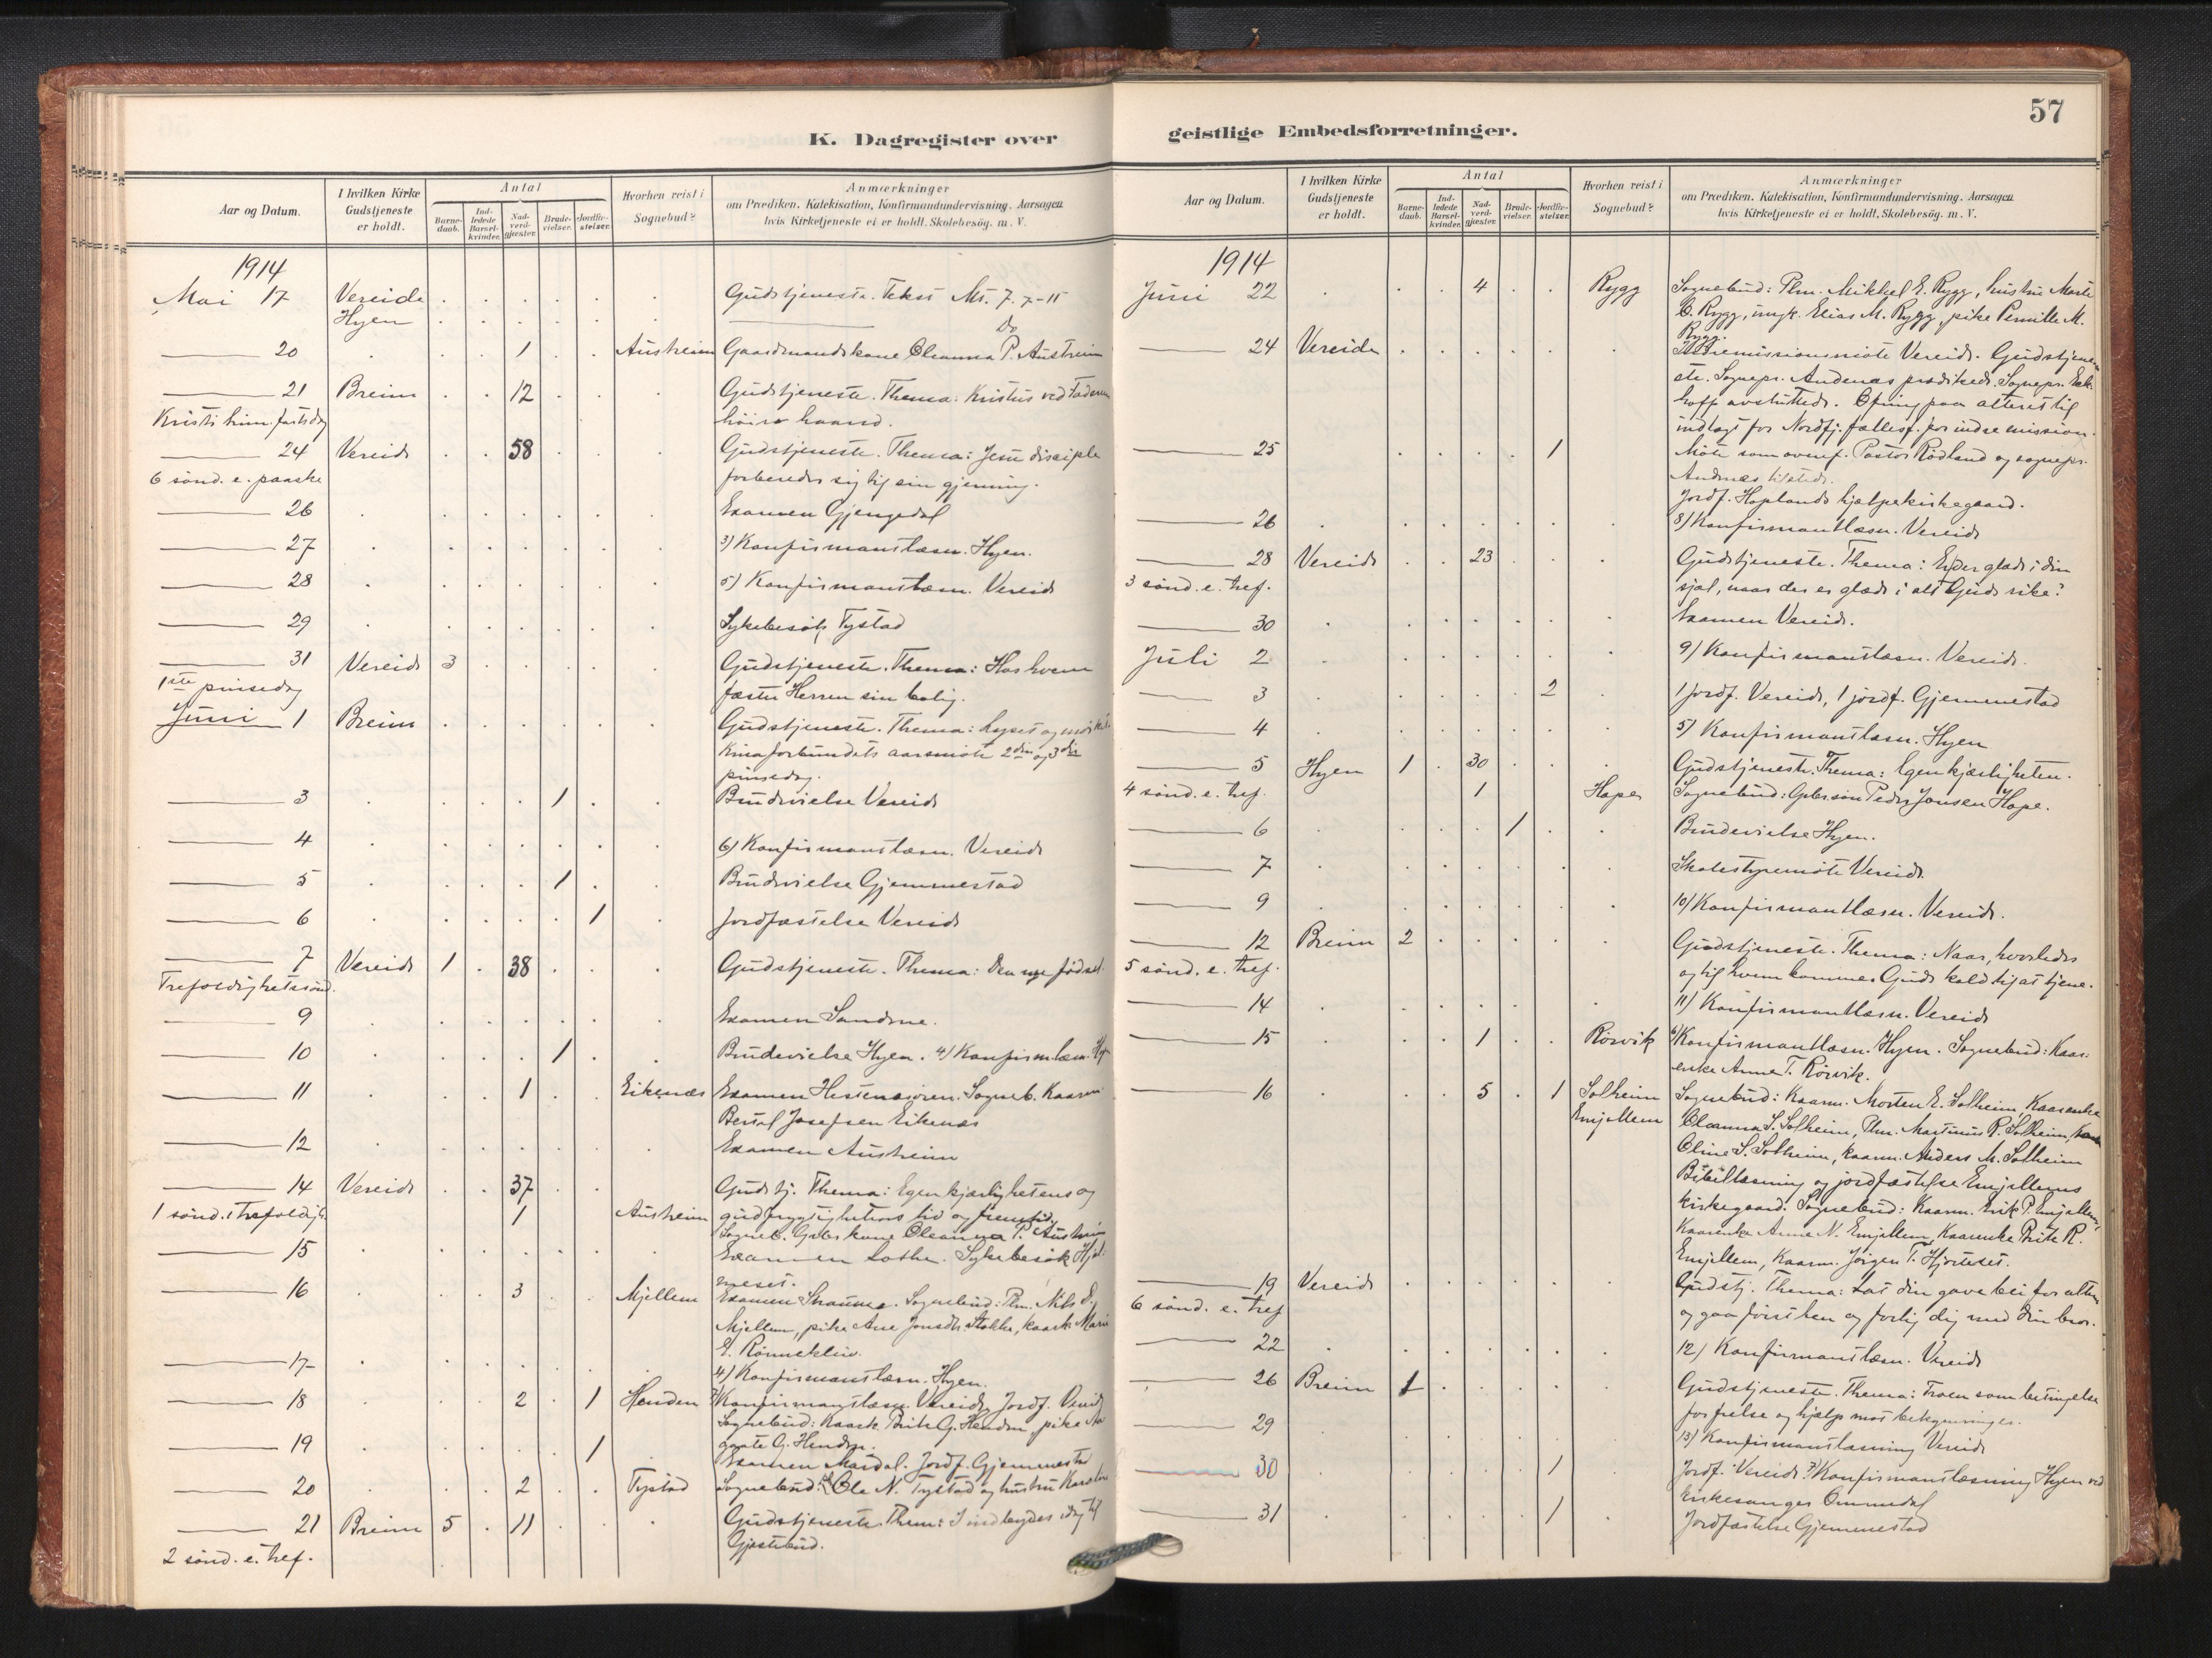 K. Dagregister over
Aar og Datum.
I hvilken Kirke
Gudstjeneste
er holdt.
Antal
Barne-
daab.
Ind-
ledede
Barsel-
kvinder.
Nad-
verd-
gjester.
Brude-
vielser.
Jordfæ-
stelser.
Hvorhen reist i
Sognebud?
Anmærkninger
om Prædiken. Katekisation, Konfirmandundervisning. Aarsagen
hvis Kirketjeneste ei er holdt. Skolebesög. m. V.
1914
Mai 17 Vereide Gudstjeneste. Tekst Mt. 7. 7-11
Hyen Do
20 1 Austreim Gaardmandskone Oleanna P. Austreim
21 Breim 12 Gudstjeneste. Thema: Kristus ved Faderens
Kristi him.fartsdag høire haand.
24 Vereide 58 Gudstjeneste. Thema: Jesu disciple
6 sönd. e. paaske forbereder sig til sin gjerning.
26 Examen Gjengedal
27 3) Konfirmantlæsn. Hyen.
28 5) Konfirmantlæsn. Vereide
29 Sykebesøk Tystad
31 Vereide 3 Gudstjeneste. Thema: Hos hvem
1ste pinsedag fæster Herren sin bolig.
Juni 1 Breim Gudstjeneste. Thema: Lyset og
Kinaforbundets aarsmöte 2den og 3die
pinsedag.
3 1 Brudevielse Vereide
4 6) Konfirmantlæsn. Vereide
5 1 Brudevielse Gjemmestad
6 1 Jordfæstelse Vereide
7 Vereide 1 38 Gudstjeneste. Thema: Den nye födsel.
Trefoldighetssönd.
9 Examen Sandene.
10 1 Brudevielse Hyen. 4) Konfirm.læsn.
11 1 Eikenæs Examen Hestenesören. Sogneb. Kaarm.
Bertel Josefsen Eikenæs
12 Examen Austreim
14 Vereide 37 Gudstj. Thema: Egenkjærlighetens og
1 sönd. e. Trefoldigh. 1 Austreim gudfrygtighetens liv og fremtid.
Sogneb. Gbr.kone Oleanna P. Austreim
15 Examen Lothe. Sykebesök
meset.
16 3 Mjellem Examen Straume. Sognebud: Plm. Nils E.
Mjellem, pike Ane Jonsdtr. Stokke, kaark. Marie
E. Rönneklev.
17 4) Konfirmantlæsn. Hyen.
18 2 1 Henden 7) Konfirmantlæsn. Vereide, Jordf. Vereide
Sognebud: Kaark. Brite G. Henden, pike
G. Henden.
19 1 Examen Mardal. Jordf. Gjemmestad
20 2 Tystad Sognebud: Ole N. Tystad og hustru
21 Breim 5 11 Gudstjeneste. Them: I indbydes idag til
2 sönd. e. tref. Gjæstebud.
geistlige Embedsforretninger.
57
Aar og Datum.
I hvilken Kirke
Gudstjeneste
er holdt.
Antal
Barne-
daab.
Ind-
ledede
Barsel-
kvinder.
Nad-
verd-
gjester.
Brude-
vielser.
Jordfæ-
stelser.
Hvorhen reist i
Sognebud?
Anmærkninger
om Prædiken. Katekisation, Konfirmandundervisning. Aarsagen
hvis Kirketjeneste ei er holdt. Skolebesög. m. V.
1914
Juni 22 4 Rygg Sognebud: Plm. Mikkel E. Rygg, hustru Marte
E. Rygg, ungk. Elias M. Rygg, pike Pernille M.
Rygg.
24 Vereide Indremissionsmöte Vereide. Gudstjene
ste. Sognepr. Andenæs prædikede. Sognepr.
hoff avsluttede. Ofring paa alteret til
indtægt for Nordfj. fællesf. for indre mission.
25 1 Möte som ovenf. Pastor Rödland og sognepr.
Andenæs tilstede.
Jordf. Hoplands hjælpekirkegaard.
26 8) Konfirmantlæsn. Vereide
28 Vereide 23 Gudstjeneste. Thema: Er der glæde i din
3 sönd. e. tref. sjæl, naar der er glæde i alt Guds rike?
30 Examen Vereide.
Juli 2 9) Konfirmantlæsn. Vereide.
3 2 1 jordf. Vereide, 1 jordf. Gjemmestad
4 5) Konfirmantlæsn. Hyen
5 Hyen 1 30 Gudstjeneste. Thema: Egenkjærligheten.
4 sönd. e. tref. 1 Hope Sognebud: Gbr.sön Peder Jonsen Hope.
6 1 Brudevielse Hyen.
7 Skolestyremöte Vereide.
9 10) Konfirmantlæsn. Vereide.
12 Breim 2 Gudstjeneste. Thema: Naar, hvorledes
5 sönd. e. tref. og til hvem kommer Guds kald til at tjene.
14 11) Konfirmantlæsn. Vereide
15 1 Rörvik 6) Konfirmantlæsn. Hyen. Sognebud: Kaar-
enke Anne T. Rörvik.
16 5 1 Solheim Sognebud: Kaarm. Morten E. Solheim, Kaarenke
Emjellem Oleanna S. Solheim, Plm. Martinus R. Solheim,
Oline S. Solheim, kaarm. Anders M. Solheim
Bibellæsning og jordfæstelse Emjellems
kirkegaard. Sognebud: Kaarm. Erik P. Emjellem,
Kaarenke Anne N. Emjellem, Kaarenke Brite R.
Emjellem, Kaarm. Jörgen T. Hjorteset.
19 Vereide Gudstj. Thema: Lat din gave bli for alteret
6 sönd. e. tref og gaa först hen og forlig dig med din bror.
22 12) Konfirmantlæsn. Vereide
26 Breim 1 Gudstjeneste. Thema: Troen som betingelse
for frelse og hjælp mot bekymringer.
29 13) Konfirmantlæsning Vereide
30 1 Jordf. Vereide. 7) Konfirmantlæsning Hyen ved
kirkesanger Ommedal
31 1 Jordfæstelse Gjemmestad